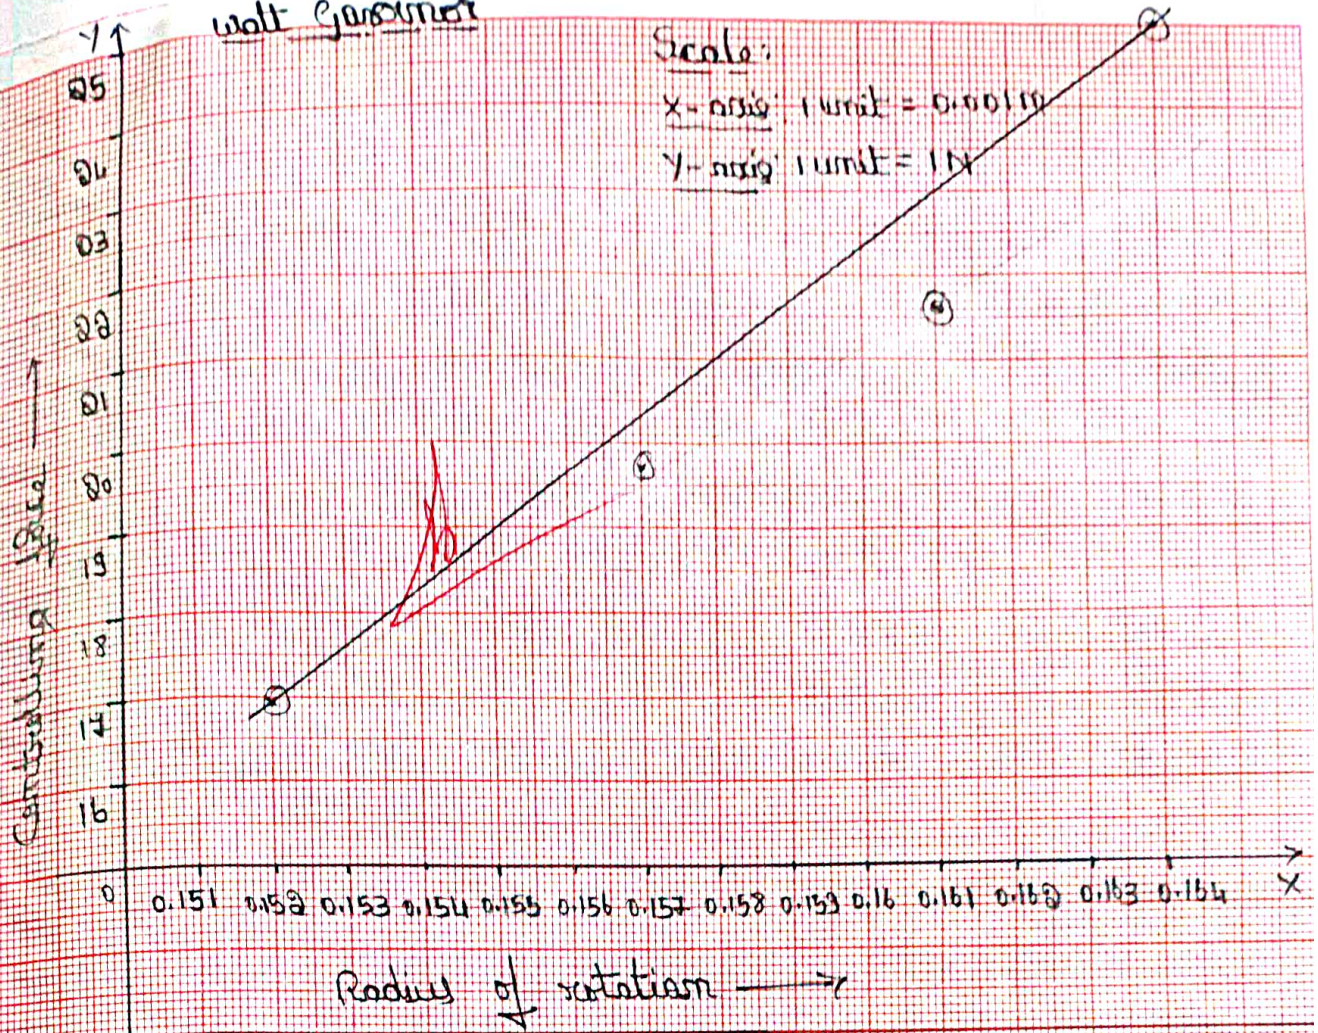 Watt Governor
Scale:
X-axis: 1 unit = 0.001m
Y-axis: 1 unit = 1N
Y
25
24
23
22
21
20
19
18
17
16
Controlling force
0 0.151 0.152 0.153 0.154 0.155 0.156 0.157 0.158 0.159 0.16 0.161 0.162 0.163 0.164 X
Radius of rotation